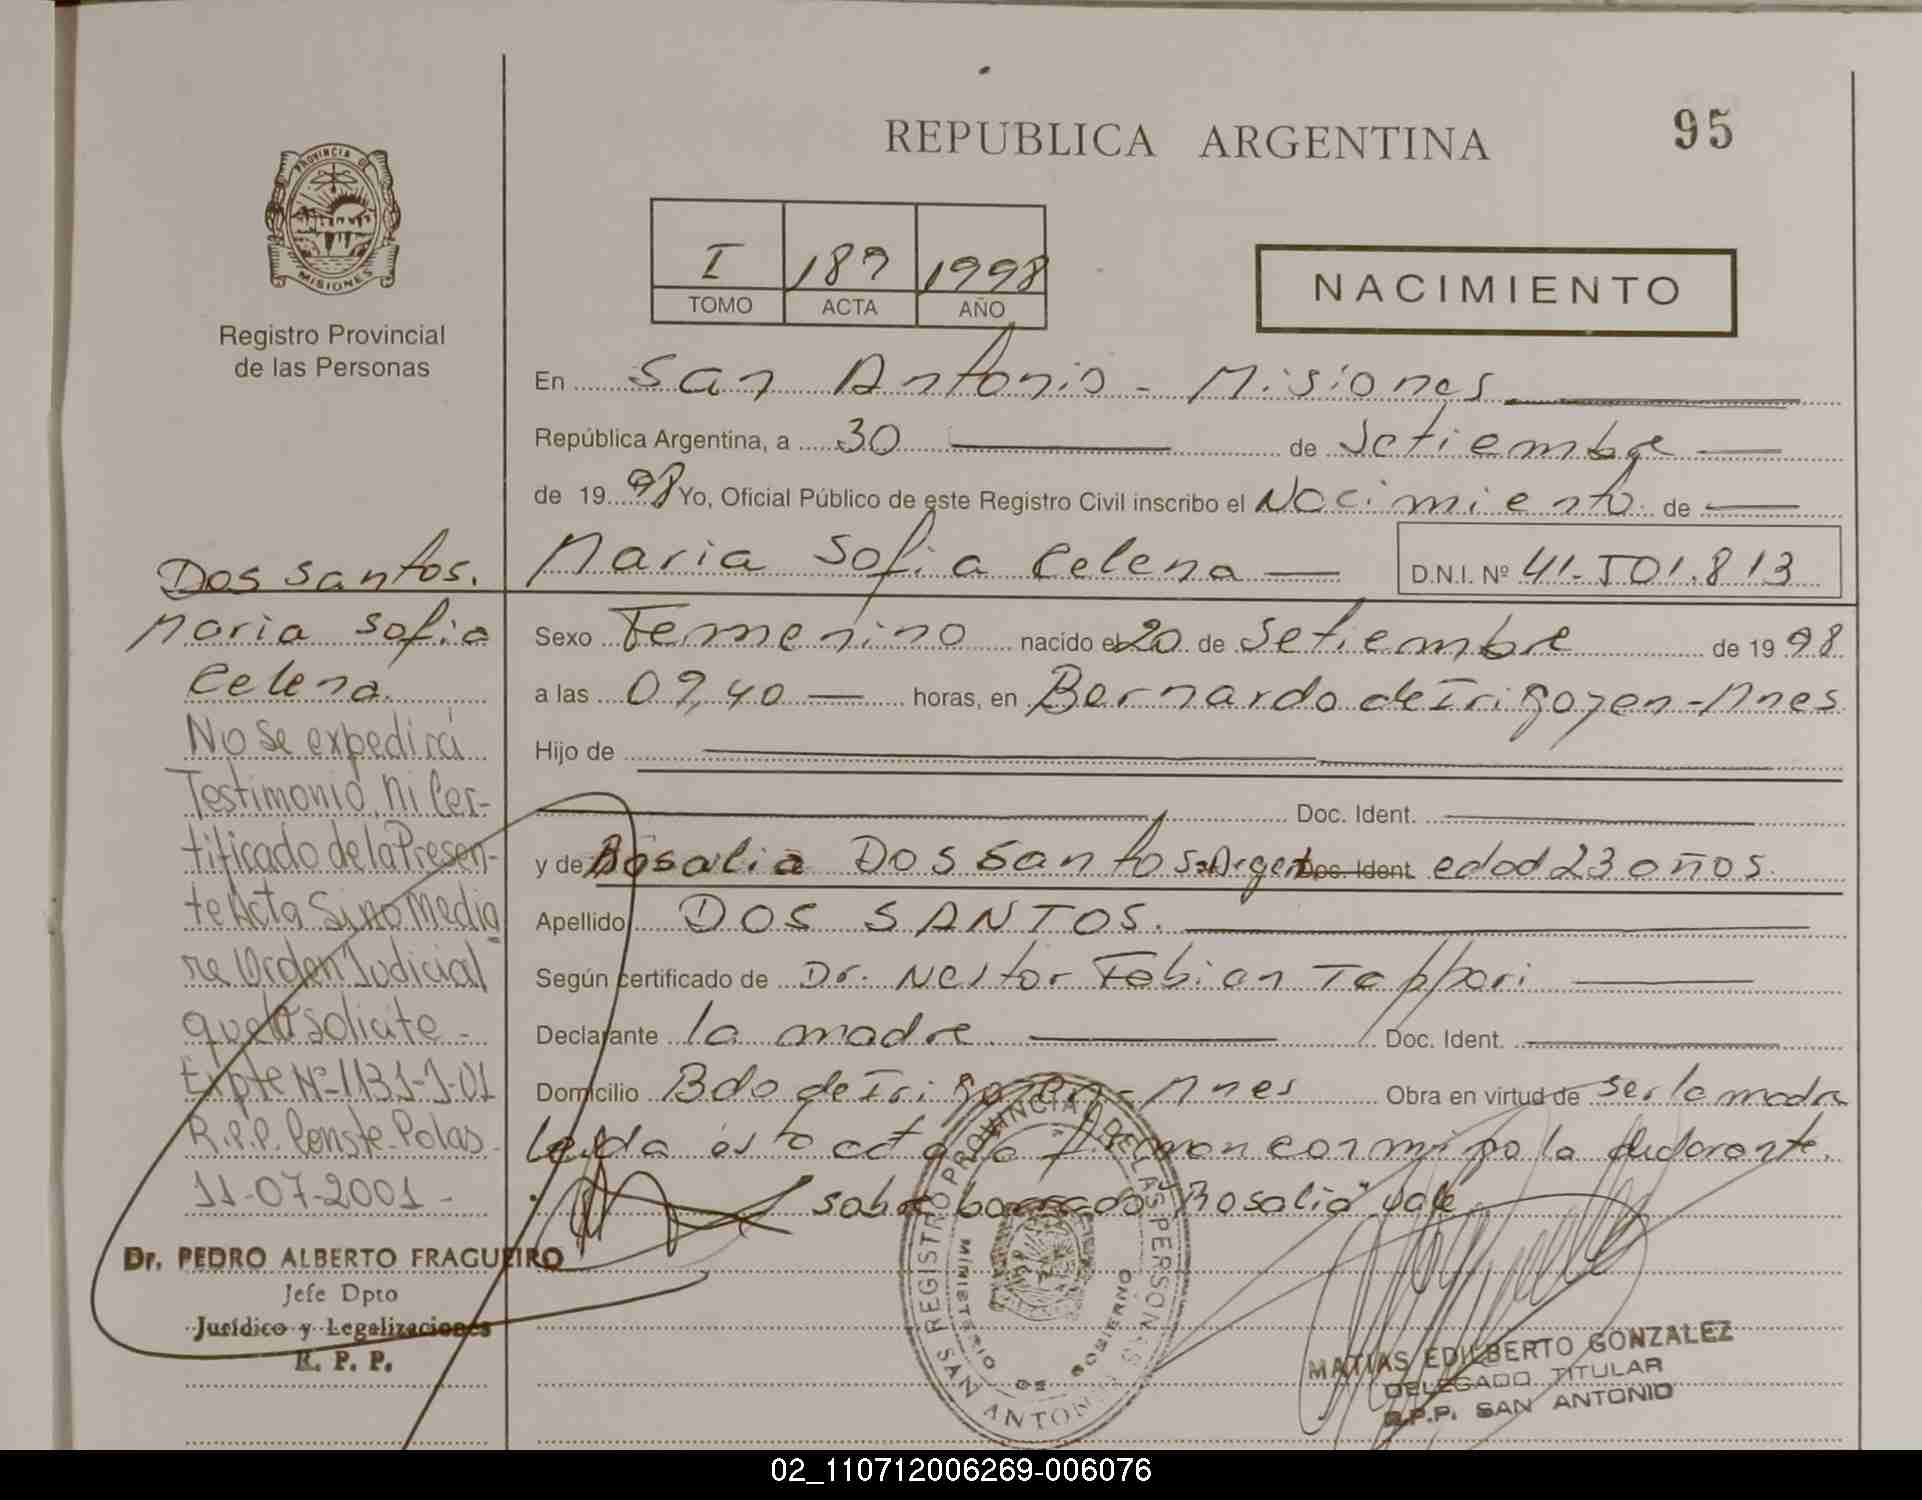 REPUBLICA ARGENTINA
95
PROVINCIA DE
MISIONES
Registro Provincial
de las Personas
I 189 1998
TOMO ACTA AÑO
NACIMIENTO
En San Antonio - Misiones
República Argentina, a 30 de Setiembre
de 1998 Yo, Oficial Público de este Registro Civil inscribo el Nacimiento de
Maria Sofia Celena D.N.I. Nº 41.501.813
Sexo Femenino nacido el 20 de Setiembre de 1998
a las 09,40 horas, en Bernardo de Irigoyen - Mnes
Hijo de
Doc. Ident.
y de Rosalia Dos Santos Argent Doc. Ident. edad 23 años.
Apellido DOS SANTOS.
Según certificado de Dr. Nestor Fabian Tappari
Declarante la madre Doc. Ident.
Domicilio Bdo de Irigoyen - Mnes Obra en virtud de ser la madre
Leida esta acta la firman conmigo la declarante.
sobre borrado "Rosalia" vale
Dos santos.
Maria Sofia
Celena.
No Se expedirá
Testimonio, ni Cer-
tificado de la Presen-
te Acta Sino Media
re Orden Judicial
que lo solicite -
Expte Nº 1131-J-01
R.P.P. Conste. Polas.
11-07-2001 -
Dr. PEDRO ALBERTO FRAGUEIRO
Jefe Dpto
Jurídico y Legalizaciones
R. P. P.
REGISTRO PROVINCIAL DE LAS PERSONAS
MINISTERIO DE GOBIERNO
SAN ANTONIO
MATIAS EDILBERTO GONZALEZ
DELEGADO TITULAR
R.P.P. SAN ANTONIO
02_110712006269-006076